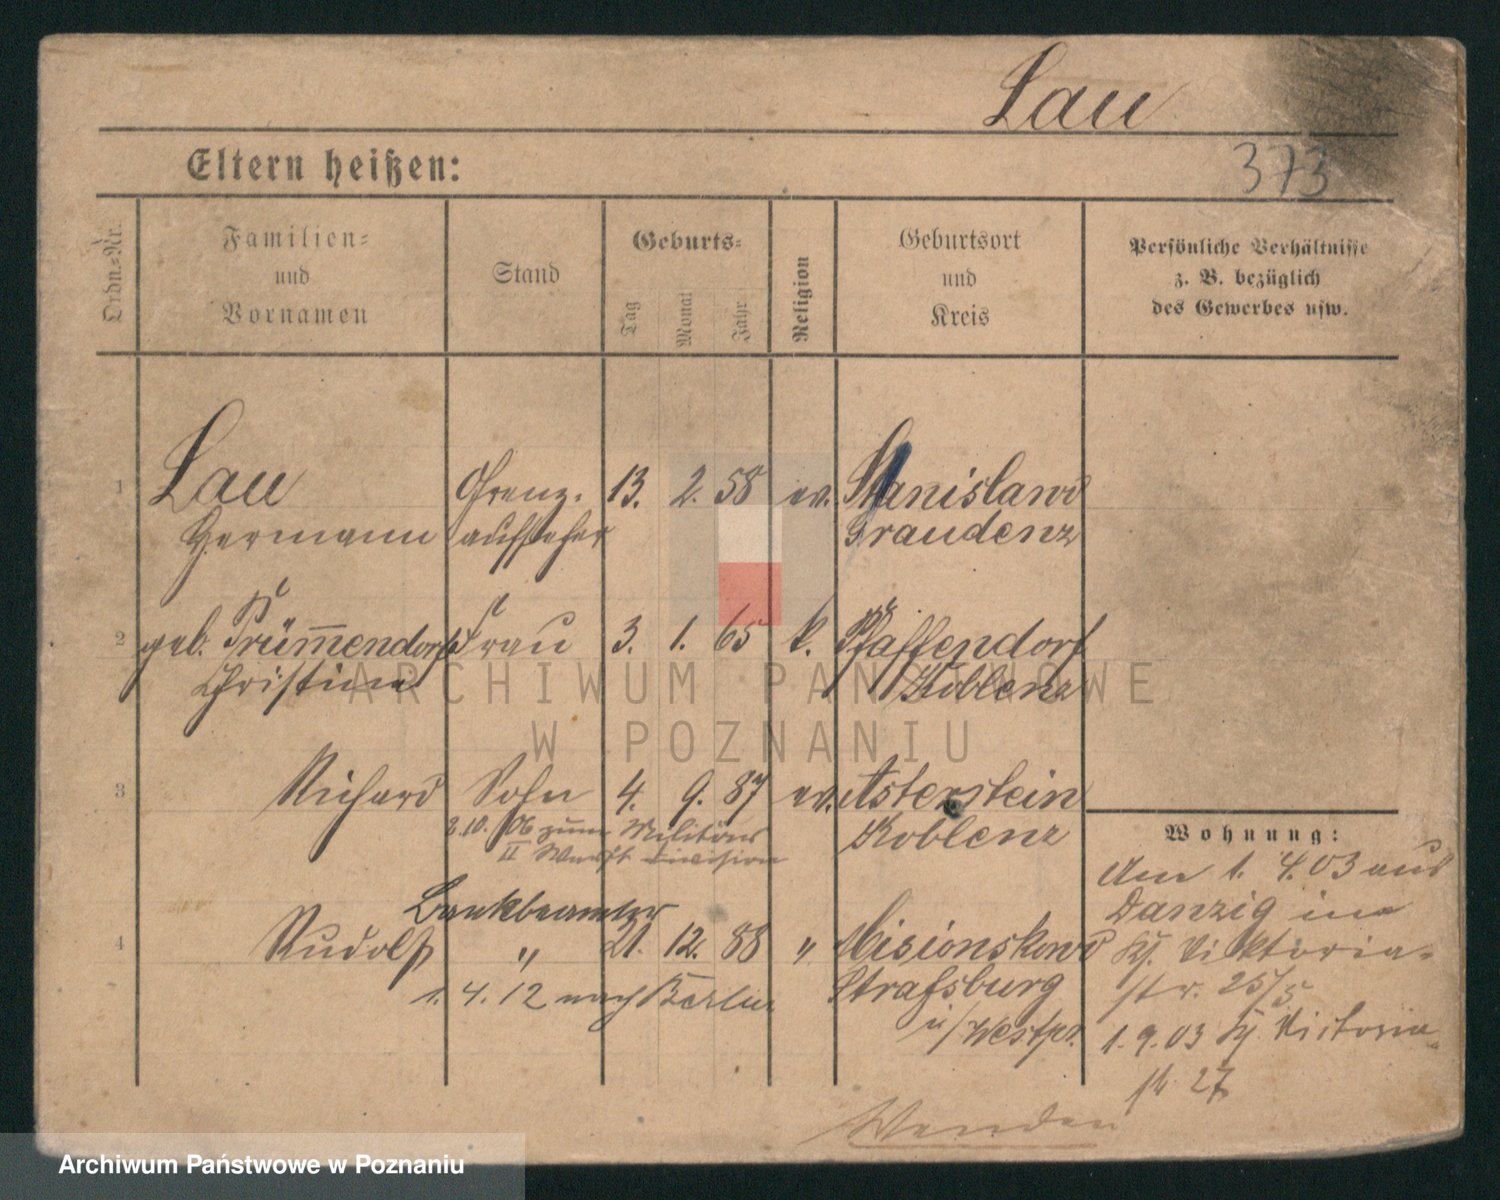 Lau
373
Eltern heißen:
Ordn.=Nr.
Familien=
und
Vornamen
Stand
Geburts=
Tag
Monat
Jahr
Religion
Geburtsort
und
Kreis
Persönliche Verhältnisse
z. B. bezüglich
des Gewerbes usw.
1 Lau Grenz- 13. 2. 58 ev. Stanislawo
Hermann aufseher Graudenz
2 geb. Trümmendorf Frau 3. 1. 65 k. Pfaffendorf
Christine Koblenz
3 Richard Sohn 4. 9. 87 ev. Asterstein
Koblenz
2.10.06 zum Militär
II Werft Division
Bankbeamter
4 Rudolf " 21. 12. 88 " Misionskowo
Strafsburg
i/Westpr.
1. 4. 12 nach Berlin
Wohnung:
Am 1. 4. 03 aus
Danzig in
Viktoria-
str. 25/5
1. 9. 03 Victoria
27
Wenden
ARCHIWUM PAŃSTWOWE
W POZNANIU
Archiwum Państwowe w Poznaniu